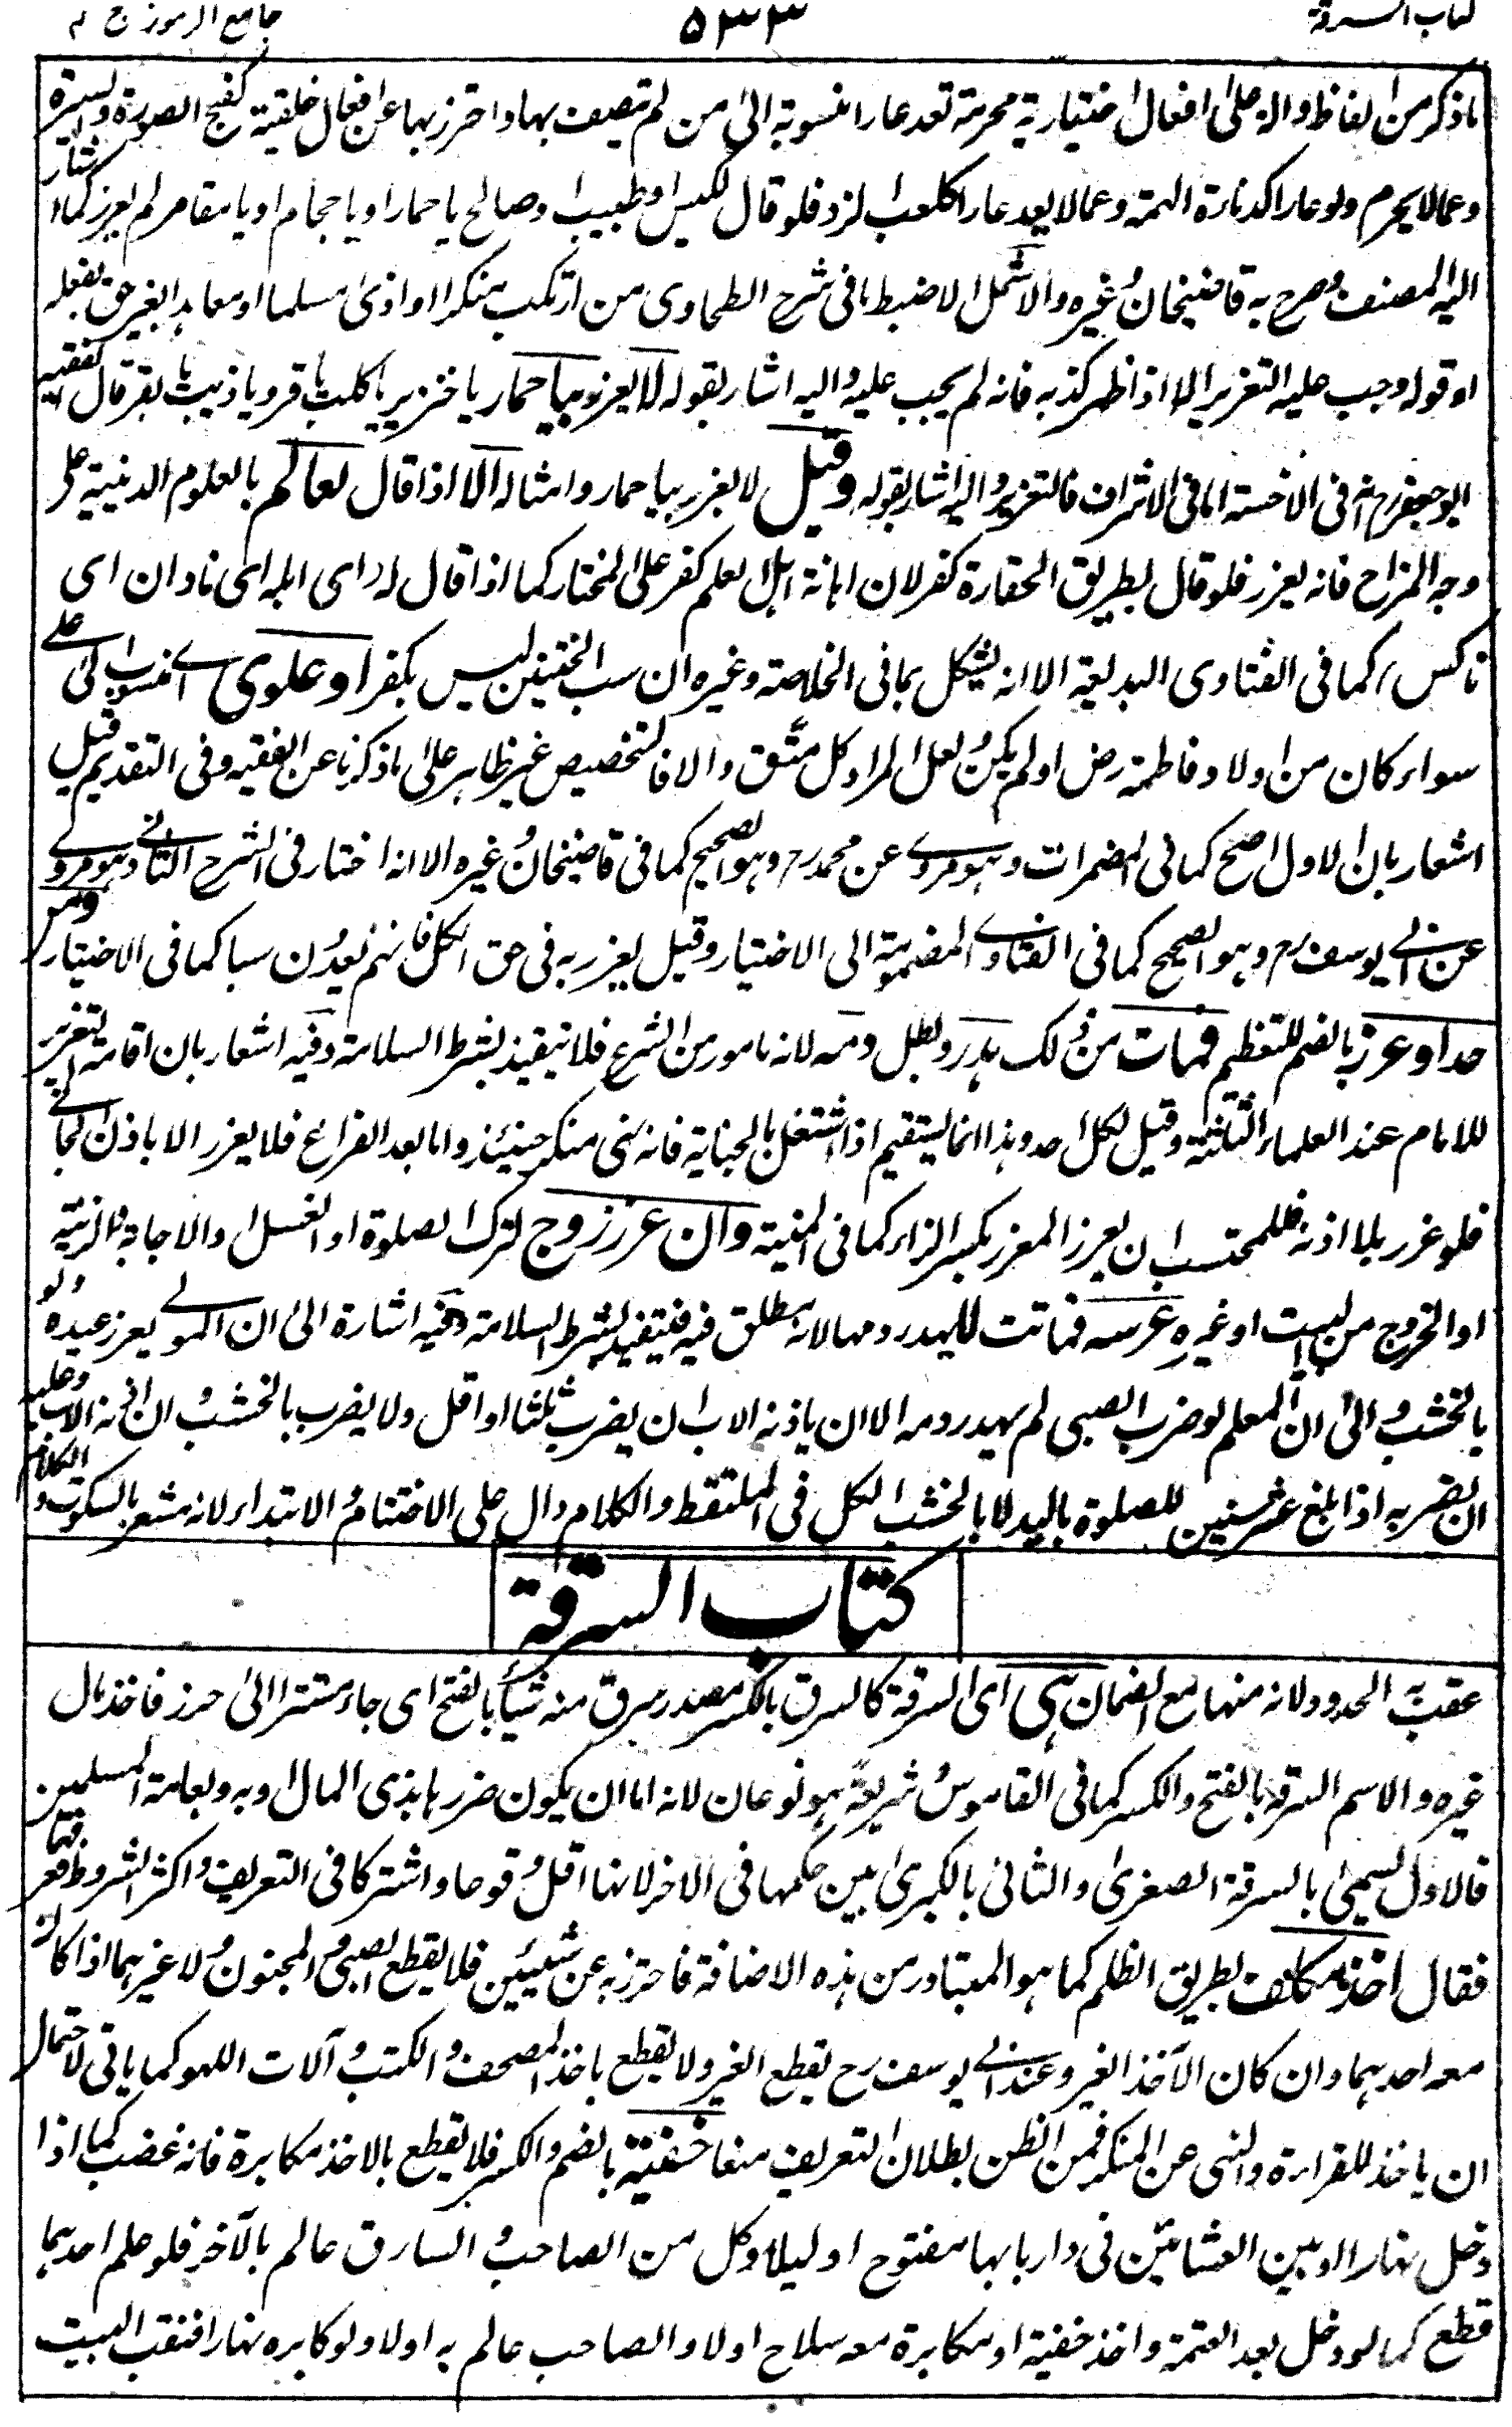 كتاب السرقة
۵۳۳
جامع الرموز ج ٢
ما ذكر من الفاظ دالة على افعال اختيارية محرمة تعد عارا منسوبة الى من لم يتصف بها واحترز بها عن افعال خلقية كقبح الصورة والسيرة
وعما لا يحرم ولو عارا كدناءة الهمة وعما لا يعد عارا كلعب النرد فلو قال لكيس او طبيب او صالح يا حمار او يا حجام او يا مقامر لم يعزر كما اشار
اليه المصنف وصرح به قاضيخان وغيره والاشمل الاضبط ما فى شرح الطحاوى من ارتكب منكرا او اذى مسلما او معاهدا بغير حق بفعله
او قوله وجب عليه التعزير الا اذا ظهر كذبه فانه لم يجب عليه واليه اشار بقوله لا يعزر بيا حمار يا خنزير يا كلب يا قرد يا ذئب يا بقر قال الفقيه
ابو جعفر رح انه فى الاخسة اما فى الاشراف فالتعزير واليه اشار بقوله وقيل لا يعزر بيا حمار وامثاله الا اذا قال لعالم بالعلوم الدينية على
وجه المزاح فانه يعزر فلو قال بطريق الحقارة كفر لان اهانة اهل العلم كفر على المختار كما اذا قال له اى ابله اى نادان اى
ناكس كما فى الفتاوى البديعية الا انه يشكل بما فى الخلاصة وغيره ان سب الختنين ليس بكفر او علوى اے منسوب الى علے
سواء كان من اولاد فاطمة رض او لم يكن ولعل المراد كل متق والا فالتخصيص غير ظاهر على ما ذكرنا عن الفقيه وفى التقديم قيل
اشعار بان الاول اصح كما فى المضمرات وهو مروے عن محمد رح وهو الصحيح كما فى قاضيخان وغيره الا انه اختار فى الشرح الثانے وهو مروے
عن ابے يوسف رح وهو الصحيح كما فى الفتاوے المضمومة الى الاختيار وقيل يعزر به فى حق الكل فانهم يعدون سبا كما فى الاختيار ومن
حد او عزر بالضم للتعظيم فمات من ذلك هدر وبطل دمه لانه مامور من الشرع فلا يتقيد بشرط السلامة وفيه اشعار بان اقامة التعزير
للامام عند العلماء الثلثة وقيل لكل احد وهذا انما يستقيم اذا اشتغل بالجناية فانه نهى منكر حينئذ واما بعد الفراغ فلا يعزر الا باذن الجانے
فلو عزر بلا اذنه فللمحتسب ان يعزر المعزر بكسر الزاء كما فى المنية وان عزر زوج لترك الصلوة او الغسل والاجابة والزينة
او الخروج من البيت او غيره عرسه فماتت لا يهدر دمها لانه مطلق فيه فيتقيد بشرط السلامة وفيه اشارة الى ان المولے يعزر عبده ولو
بالخشب والى ان المعلم لو ضرب الصبى لم يهدر دمه الا ان ياذنه الاب ان يضرب ثلثا او اقل ولا يضرب بالخشب ان اذنه الاب وعليه
ان يضربه اذا بلغ عشر سنين للصلوة باليد لا بالخشب الكل فى الملتقط والكلام دال على الاختتام والابتداء لانه مشعر بالسكوت والكلام
كتاب السرقة
عقب به الحدود لانه منها مع الضمان هى اى السرقة كالسرق بالكسر مصدر سرق منه شيأ بالفتح اى جاء مستترا الى حرز فاخذ مال
غيره والاسم السرقة بالفتح والكسر كما فى القاموس وشريعة هو نوعان لانه اما ان يكون ضررها بذى المال او به وبعامة المسلمين
فالاول يسمى بالسرقة الصغرى والثانى بالكبرى بين حكمها فى الاخر لانها اقل وقوعا واشتركا فى التعريف واكثر الشروط فعرفها
فقال اخذ مكلف بطريق الظلم كما هو المتبادر من هذه الاضافة فاحترز به عن شيئين فلا يقطع الصبى والمجنون ولا غيرهما اذا كان
معه احدهما وان كان الآخذ الغير وعند ابے يوسف رح يقطع الغير ولا يقطع باخذ المصحف والكتب وآلات اللهو كما ياتى لاحتمال
ان ياخذ للقراءة والنهى عن المنكر فمن الظن بطلان التعريف منعا خفية بالضم والكسر فلا يقطع بالاخذ مكابرة فانه غصب كما اذا
دخل نهارا او بين العشائين فى دار بابها مفتوح او ليلا وكل من الصاحب والسارق عالم بالآخر فلو علم احدهما
قطع كما لو دخل بعد العتمة واخذ خفية او مكابرة معه سلاح او لا والصاحب عالم به او لا ولو كابره نهارا فنقب البيت